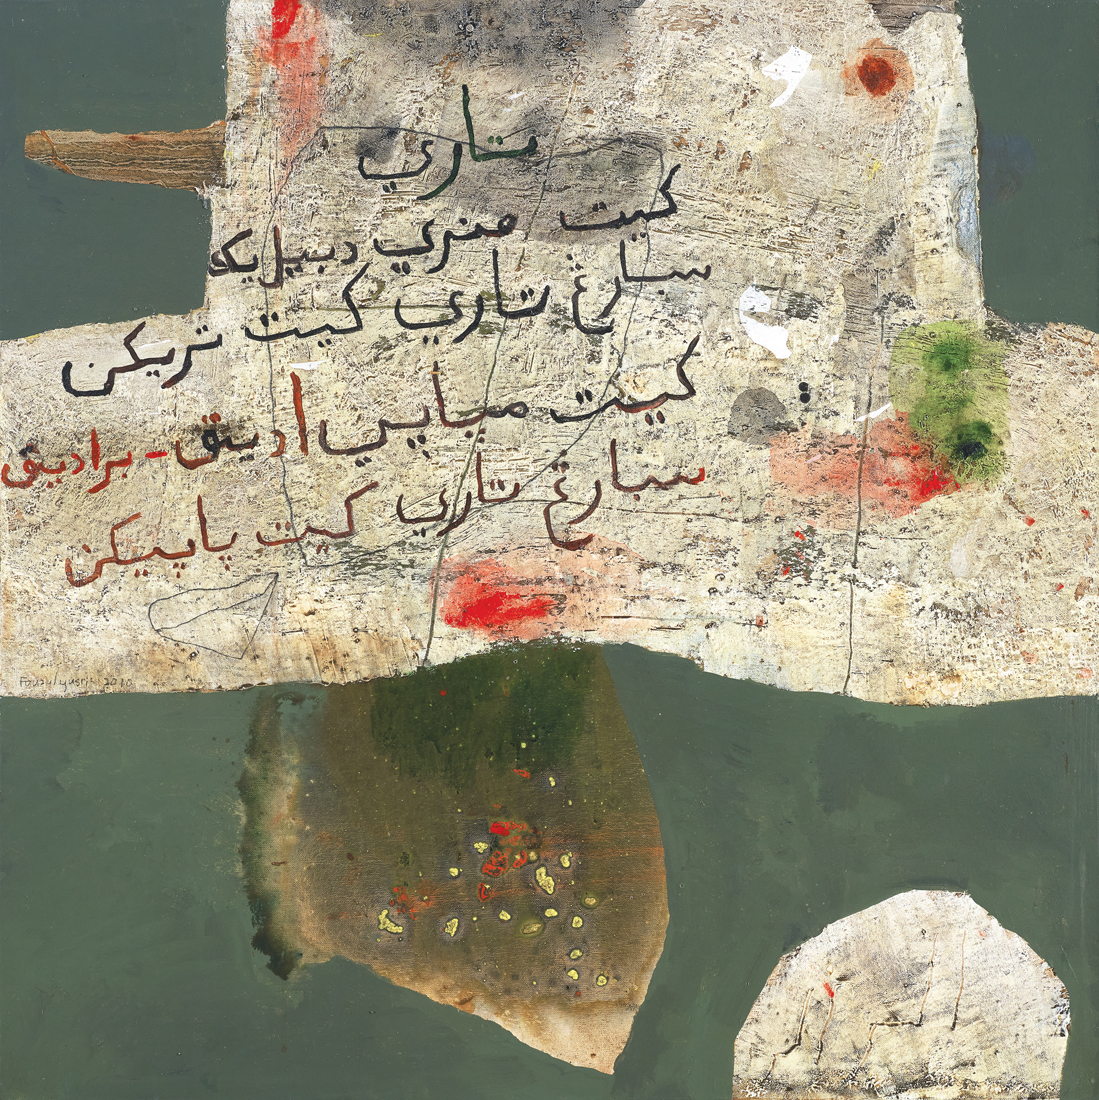 تاري
كيت منري دبيليک
سبارڠ تاري كيت تريكن
كيت مپاپي اديق-براديق
سبارڠ تاري كيت پاپيكن
Fauzulyusri 2010